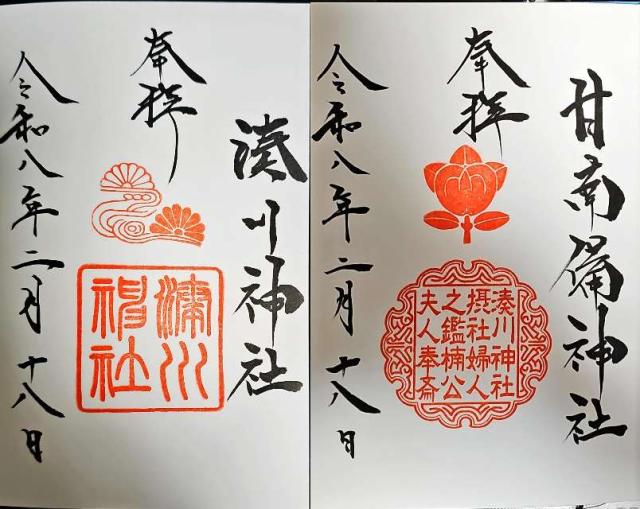 奉拝
湊川神社
湊川
神社
令和八年二月十八日
甘南備神社
奉拝
湊川神社
摂社婦人
之鑑楠公
夫人奉斎
令和八年二月十八日